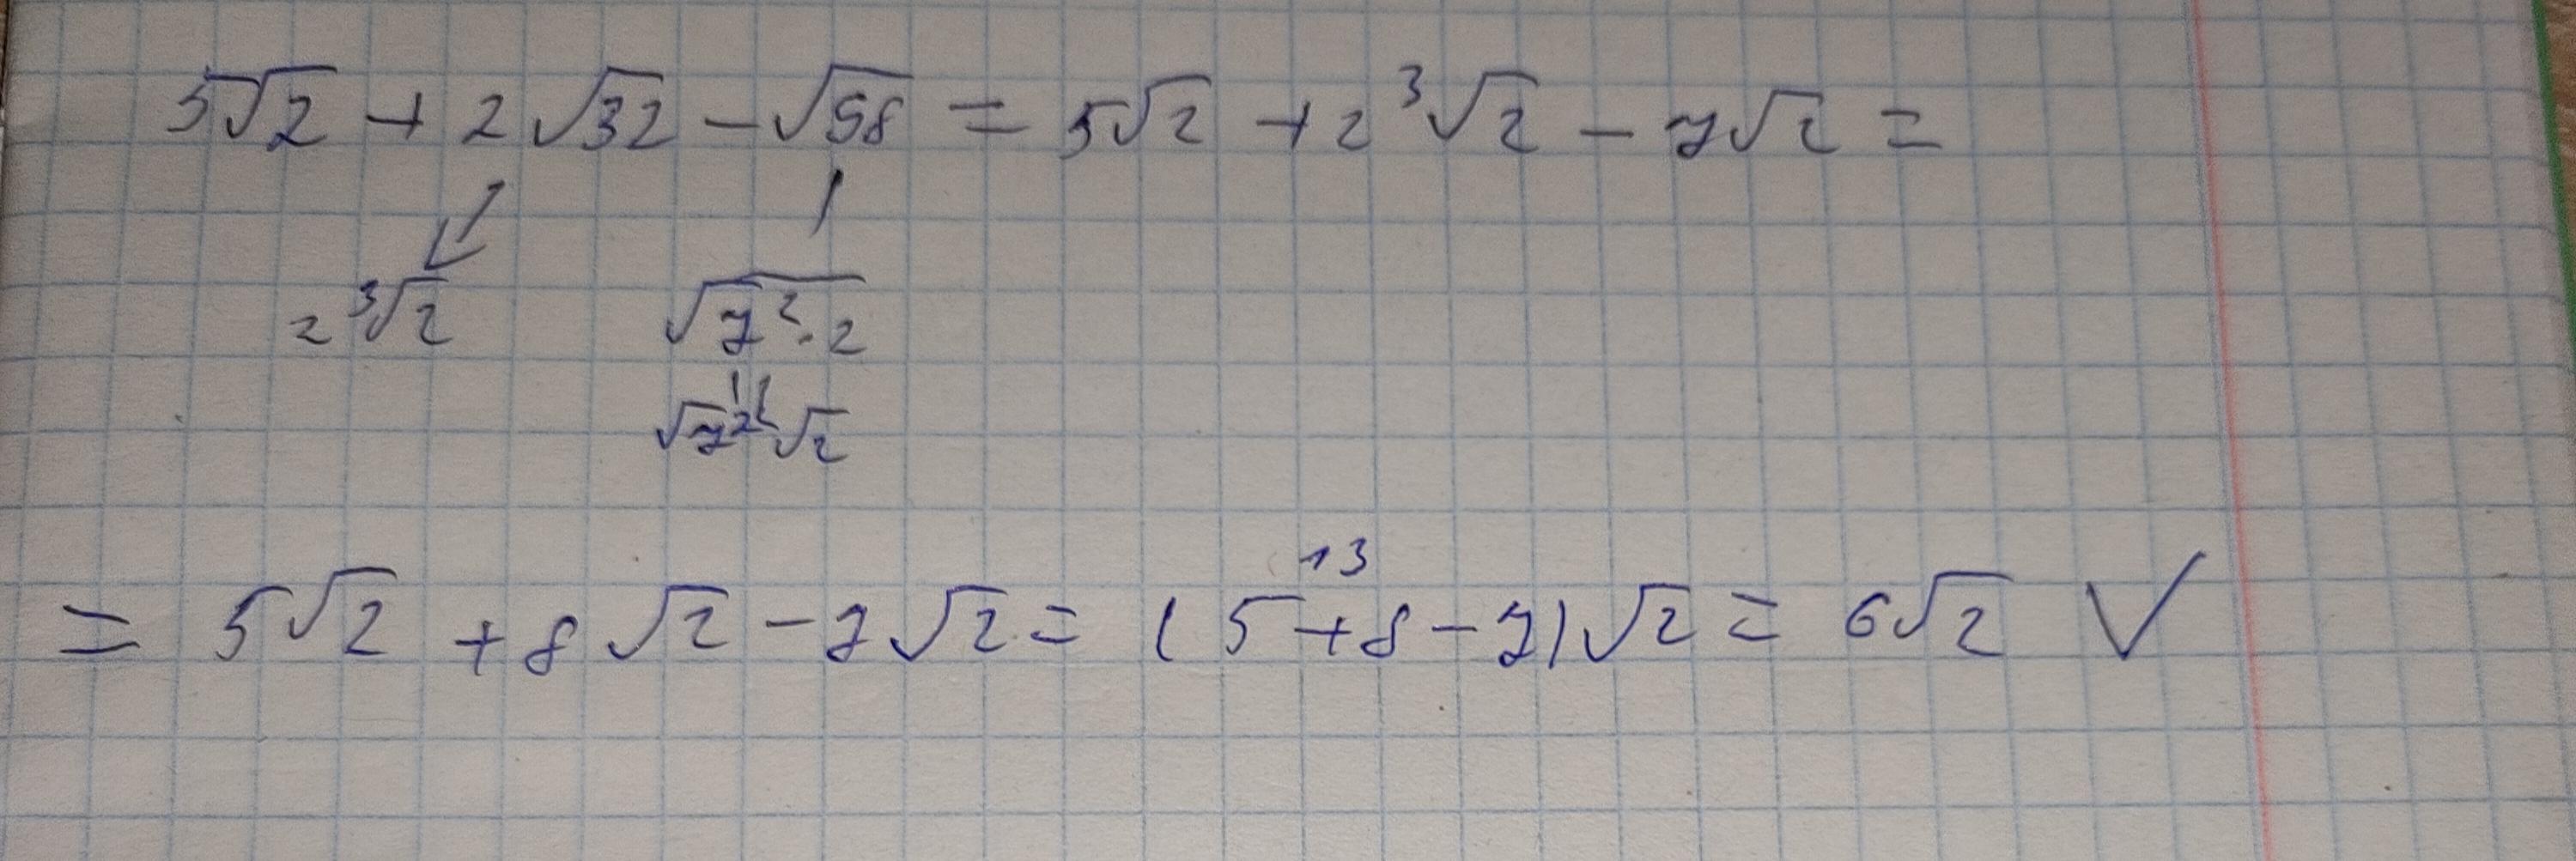 5√2 + 2√32 − √98 = 5√2 + 2³√2 − 7√2 =
2³√2 √7²·2
√7² √2
13
= 5√2 + 8√2 − 7√2 = (5+8−7)√2 = 6√2 ✓